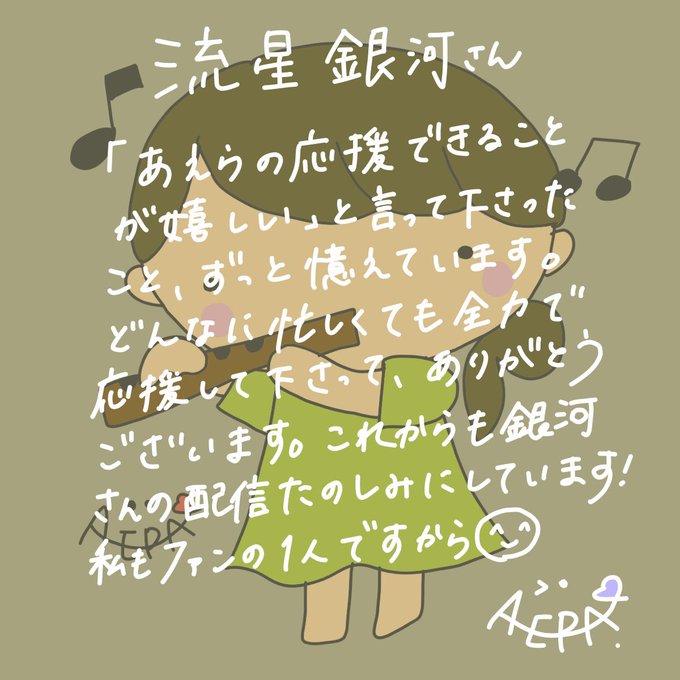 流星 銀河さん
「あえらの応援できること
が嬉しい」と言って下さった
こと、ずっと憶えています。
どんなに忙しくても全力で
応援して下さって、ありがとう
ございます。これからも銀河
さんの配信たのしみにしています!
私もファンの1人ですから
AERA
AERA.